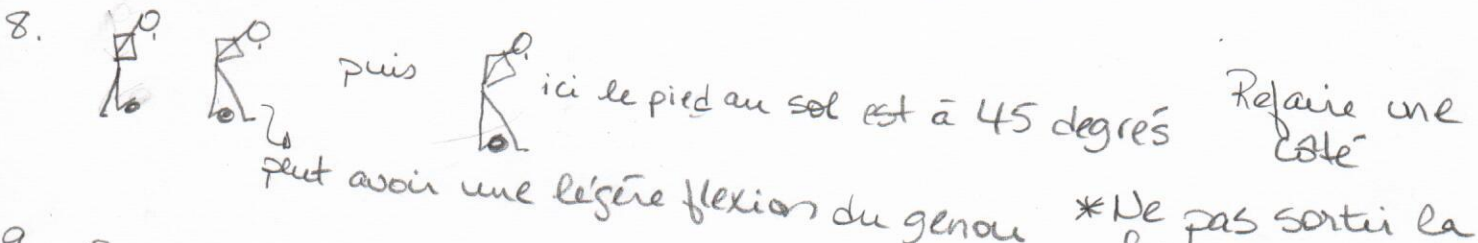 8. puis ici le pied au sol est à 45 degrés Refaire une
côté
peut avoir une légère flexion du genou *Ne pas sortir la
9